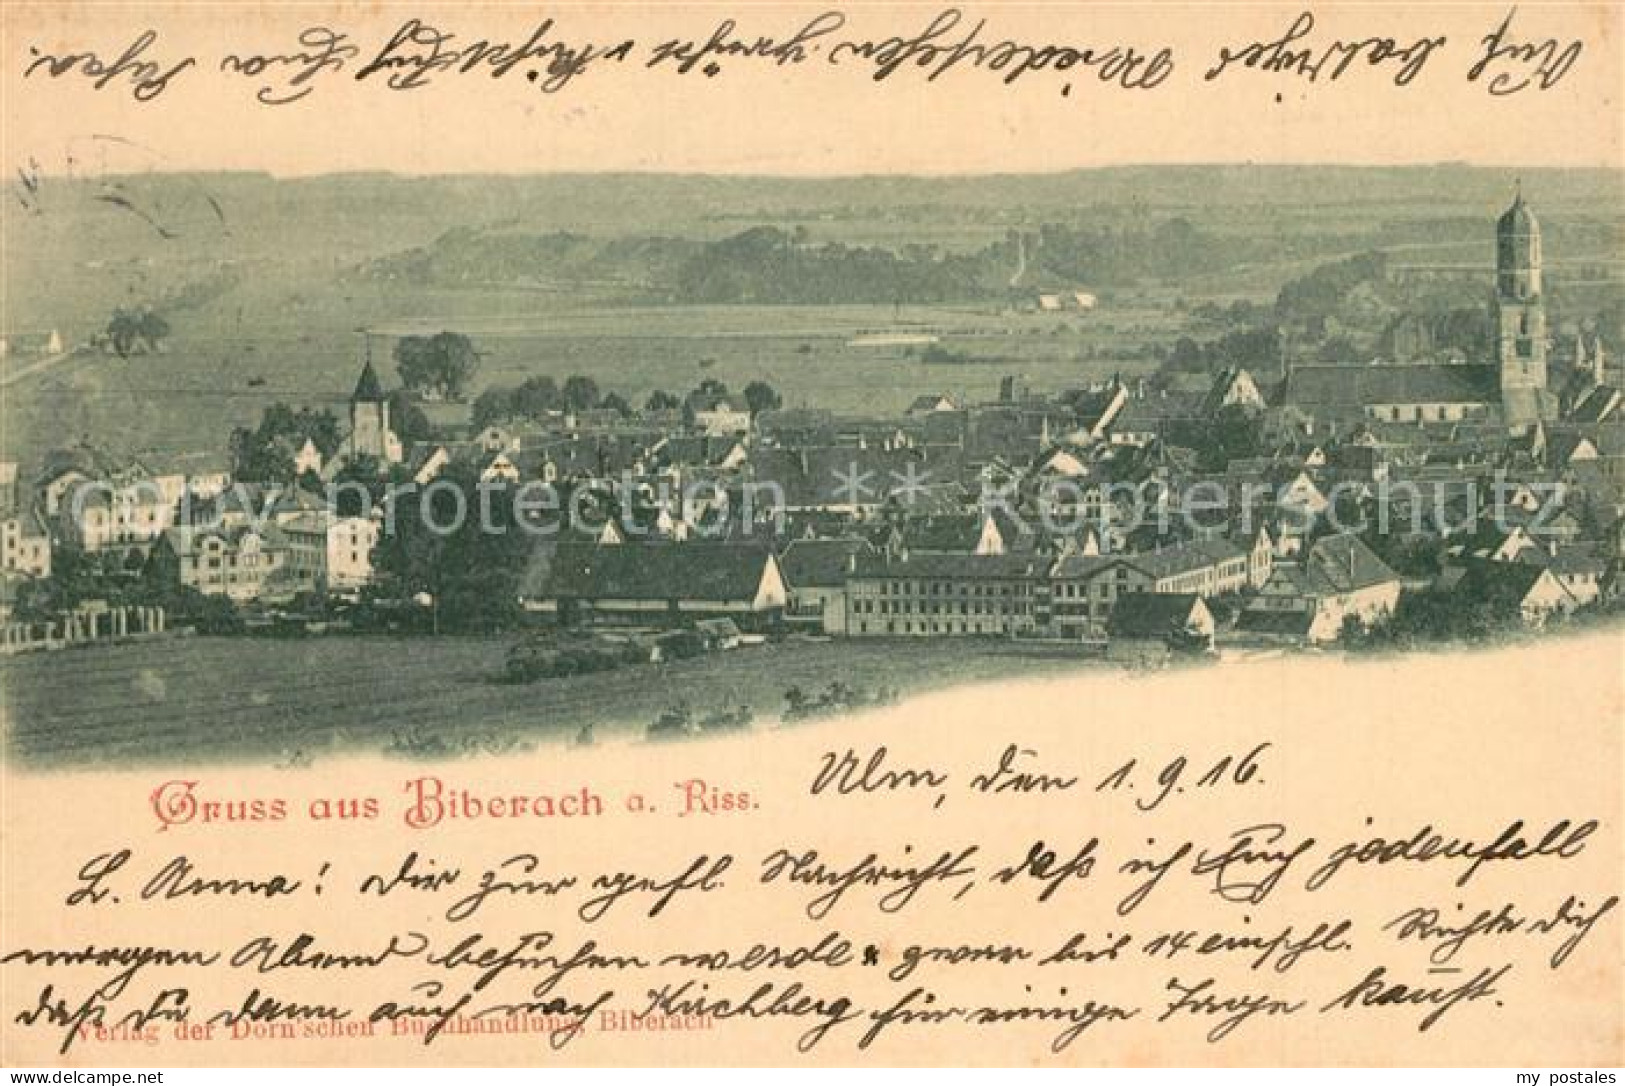 Auf baldiges Wiedersehen grüßt u. küßt Euch Euer
Gruss aus Biberach a. Riss.
Ulm, den 1.9.16.
L. Anna! Dir zur gefl. Nachricht, daß ich Euch jedenfall
morgen Abend besuchen werde u zwar bis 14 einschl. Richte Dich
daß Du dann auch nach Kirchberg für einige Tage kannst.
Verlag der Dorn'schen Buchhandlung, Biberach
copy protection ** Kopierschutz
my postales